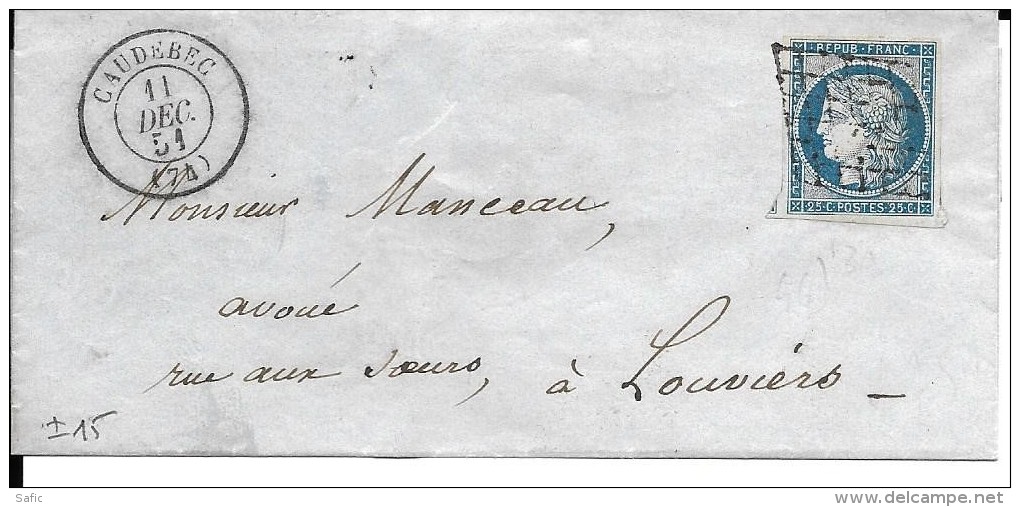 CAUDEBEC
11
DEC.
51
(74)
REPUB·FRANC·
25·C·POSTES·25·C·
Monsieur Manceau,
avoué
rue aux sœurs, à Louviérs _
±15
Safic
www.delcampe.net